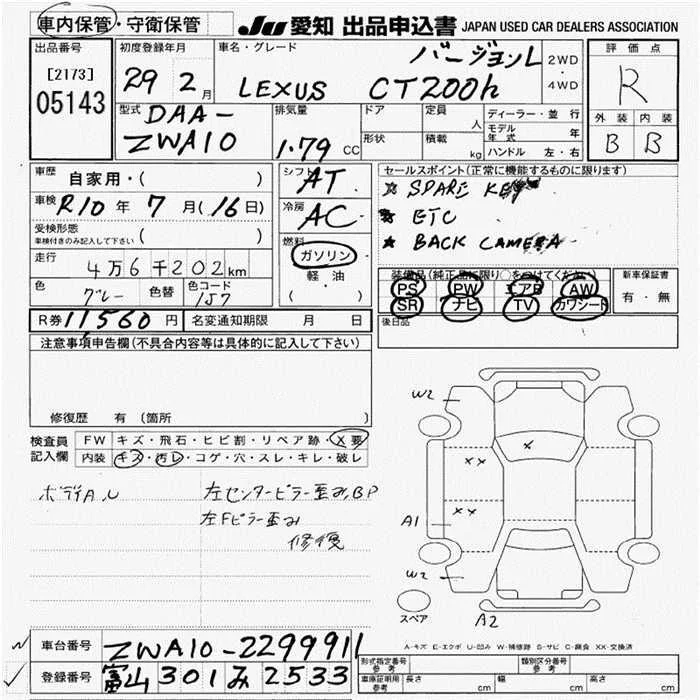 車内保管・守衛保管
JU 愛知 出品申込書 JAPAN USED CAR DEALERS ASSOCIATION
出品番号
[2173]
05143
初度登録年月
29 2月
車名・グレード
バージョンL
LEXUS CT200h
2WD
・
4WD
評価点
R
外装 内装
B B
型式
DAA-
ZWA10
排気量
1.79 CC
ドア
形状
定員
人
積載
kg
ディーラー・並行
モデル年式 年
ハンドル 左・右
車歴
自家用・( )
車検 R10年 7月(16日)
受検形態
車検付きのみ記入して下さい ( )
走行
4万6千202km
色 グレー 色替 色コード 1J7
シフト
AT
冷房
AC
燃料
ガソリン
軽・油
( )
セールスポイント(正常に機能するものに限ります)
☆ SPARE KEY
★ ETC
★ BACK CAMERA
装備品(純正品に限り○をつけてください)
PS PW エアB AW
SR ナビ TV カワシート
新車保証書
有・無
後日品
R券 11560円 名変通知期限 月 日
注意事項申告欄(不具合内容等は具体的に記入して下さい)
修復歴 有(箇所 )
検査員
記入欄
FW キズ・飛石・ヒビ割・リペア跡・X要
内装 キズ・汚レ・コゲ・穴・スレ・キレ・破レ
ボディA,U 左センターピラー歪み,BP
左Fピラー歪み
修復
W2
X
XX
XX
A1
W2
A2
スペア
A-キズ E-エクボ U-凹み W-補修跡 S-サビ C-腐食 XX-交換済
車台番号 ZWA10-2299911
登録番号 富山 301 み 2533
形式指定番号
参考
類別区分番号
参考
車庫証明用
参考
長さ cm 幅 cm 高さ cm